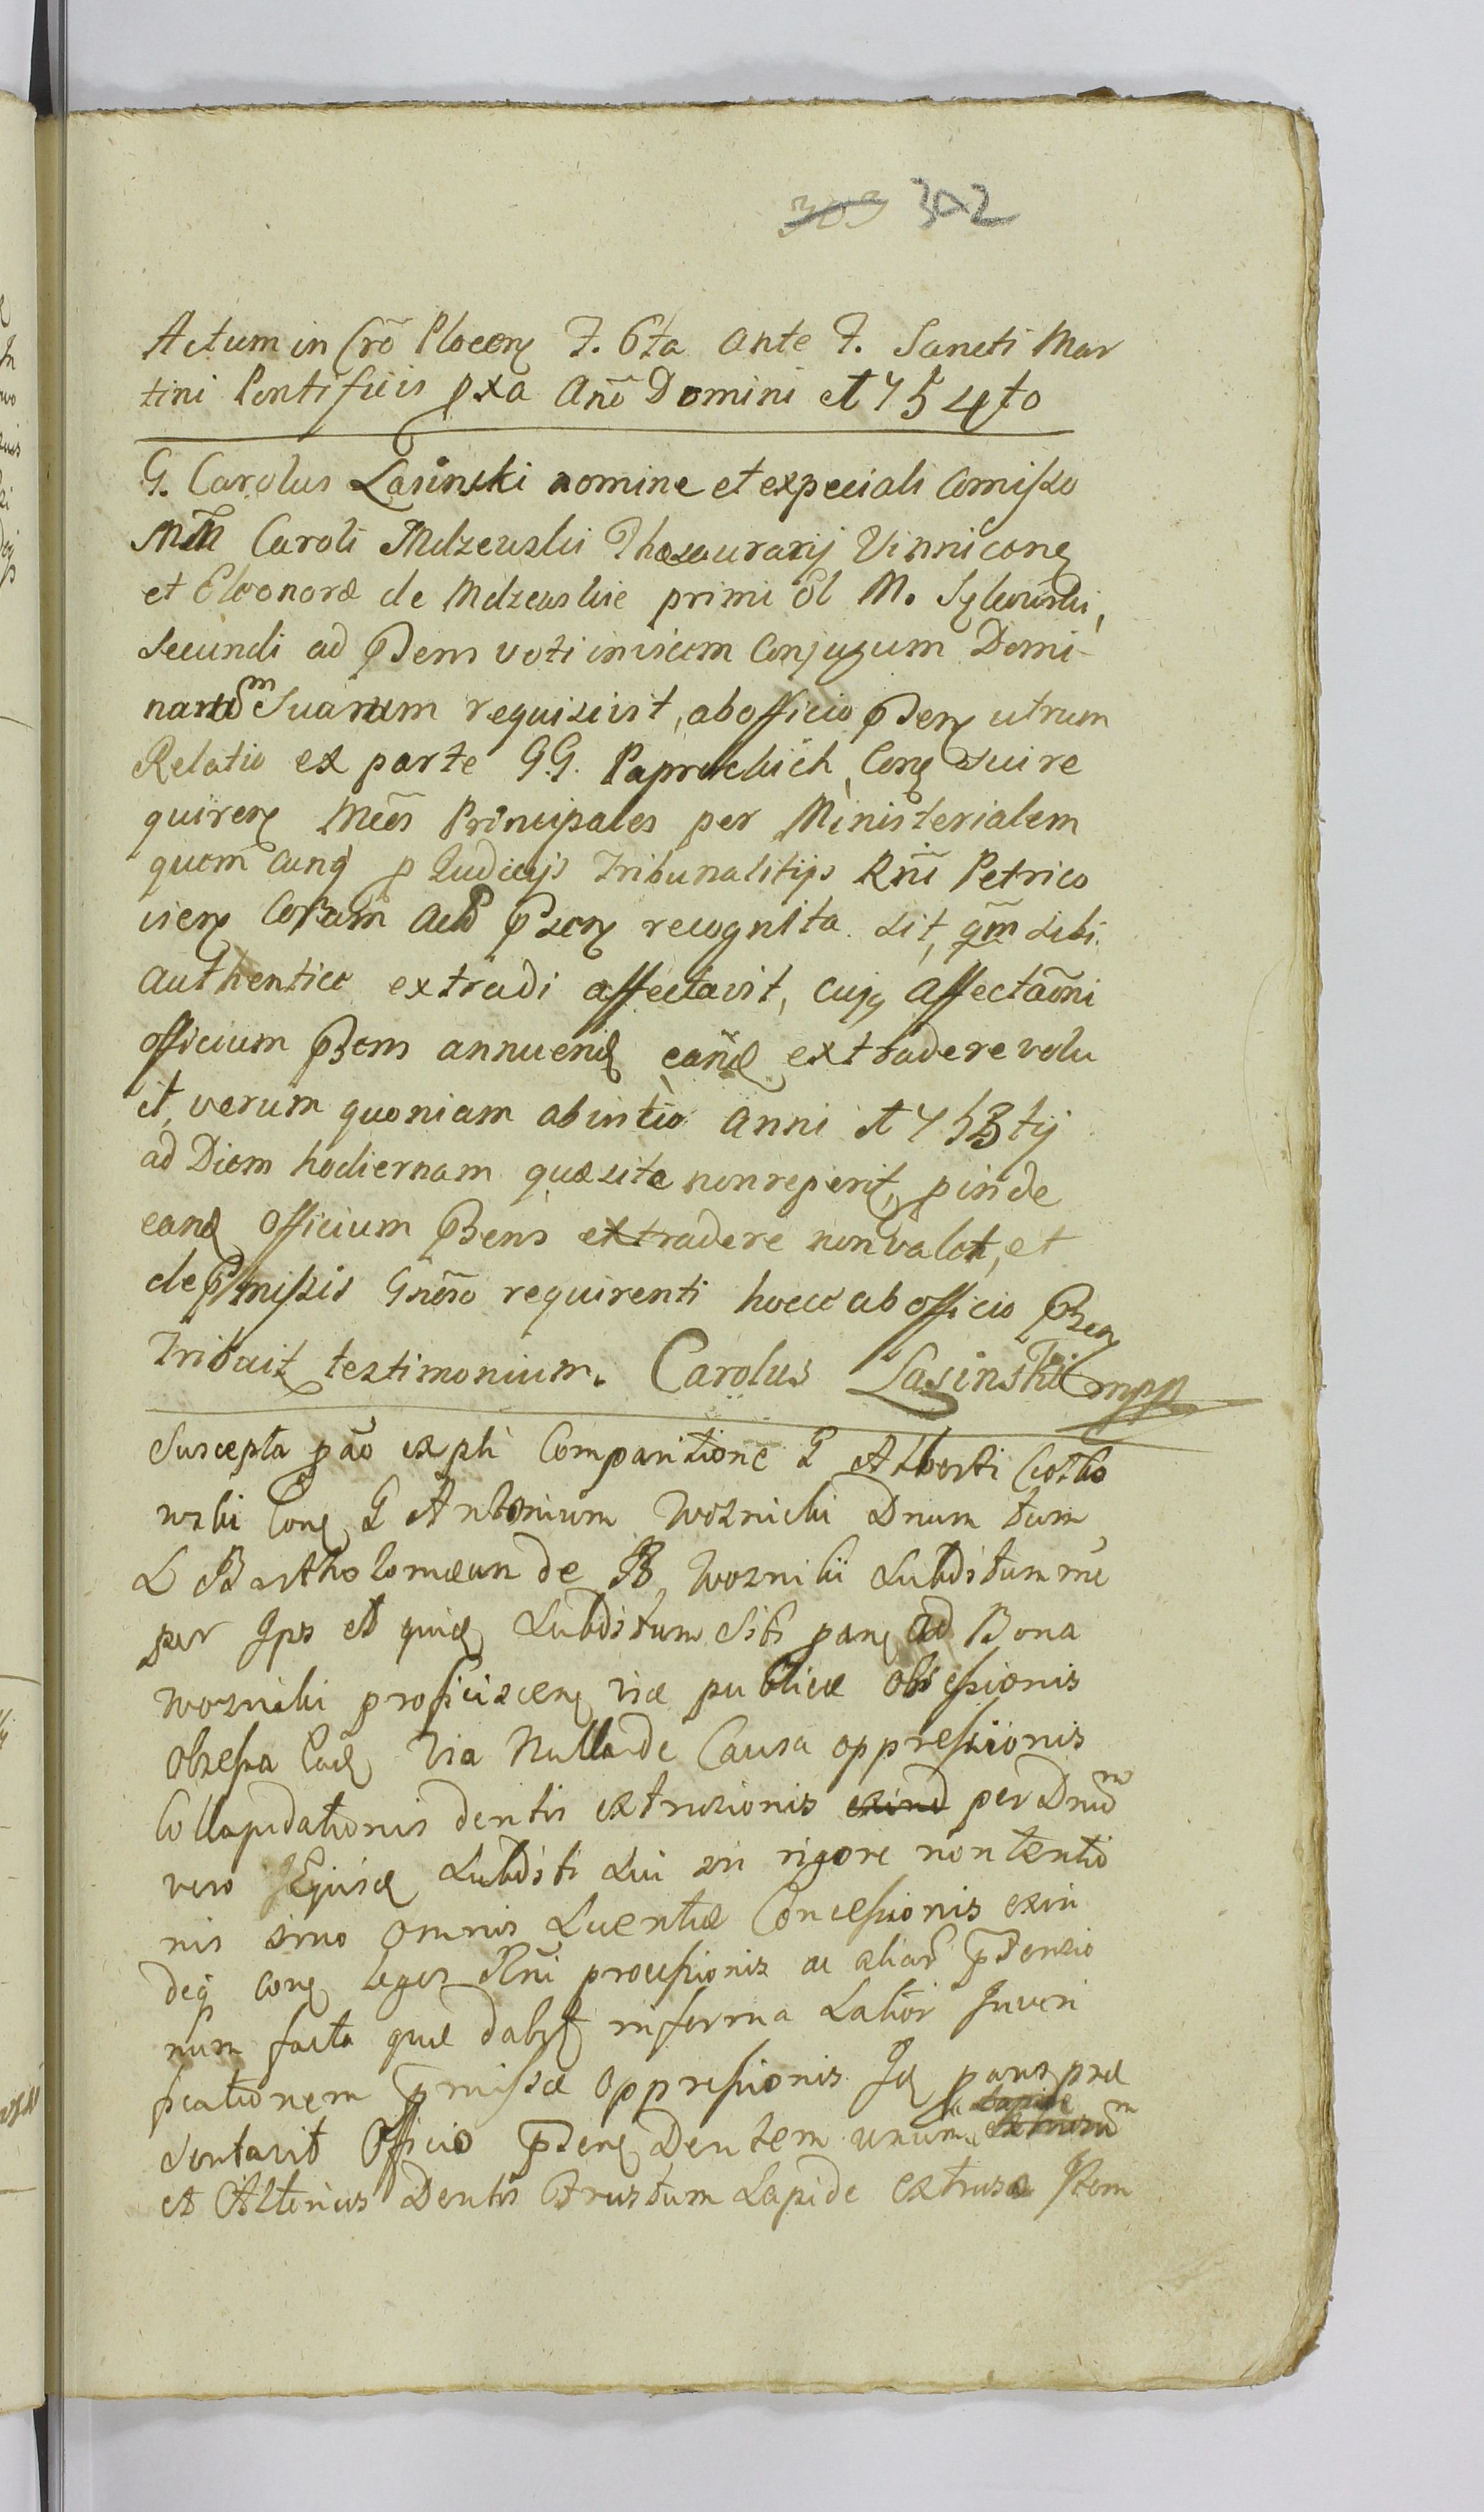 303 302
Actum in Crō Plocen F. 6ta ante F. Sancti Mar
tini Pontificis pxa Anō Domini 1754to
G. Carolus Lasinski nomine et expeciali Comisso
MM Caroli Mdzewski Thesaurarij Vinnicen
et Eleonoræ de Mdzewskie primi ol M.
Secundi ad Psens voti invicem Conjugum Domi-
norum Suorum requisivit, ab officio Psen utrum
Relatio ex parte G.G. Paprockich Con sui re
quiren Mccs Principales per Ministerialem
quem cunq p Judicijs Tribunalitijs Rni Petrico
vien Coram Actis Psen recognita sit, qm sibi
authentice extradi affectavit, cujq affectaōni
officium Psens annuend eand extradere volu
it, verum quoniam ab initio Anni 1753tij
ad Diem hodiernam quæsita non reperit, pinde
eand officium Psens extradere non valet, et
de Pmissis Gnōso requirenti hocce ab officio Psen
Tribuit testimonium. Carolus Lasinski mpp
Suscepta pāo expti Comparitione G Alberti
wski Con G Antonium Woznicki Dnum tum
L Bartholomæum de B Wozniki Subditum
per Ips et quid Subditum Sibi pan ad Bona
Wozniki proficiscen viæ publicæ obsessionis
Obsessa Ead Via Nulla de Causa oppressionis
Collapidationis dentis extrusionis exind per Dnum
vero Ejusd Subditi Sui in rigore non tentio
nis imo omnis Licentiæ Concessionis exin
deq con leges Rni processionis ac aliar Ptensio
num facta quæ dabit in forma Latior Juveri
ficationem Pmissæ oppressionis Id pans præ
sentavit Officio Psen Dentem unum Lapide extrusum
et Alterius Dentis Frustum Lapide extrusa Item